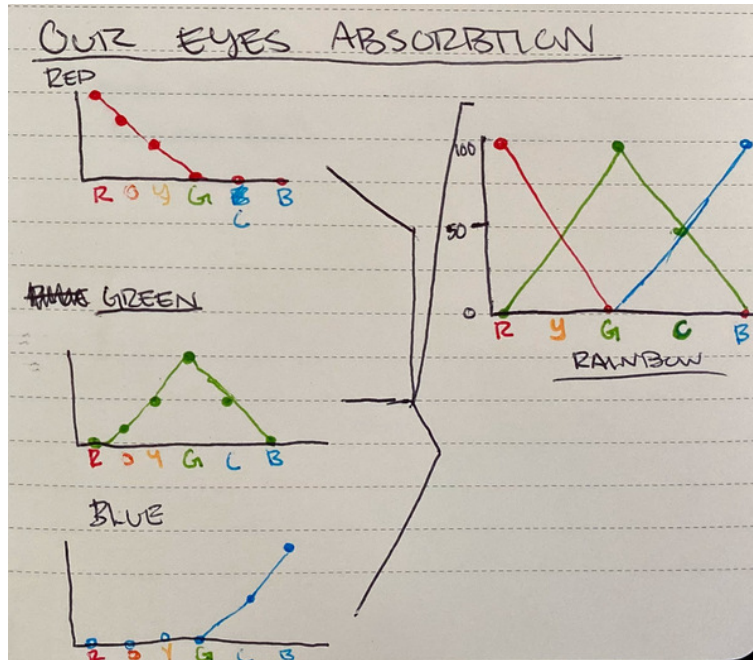 OUR EYES ABSORBTION
RED
R O Y G B B
C
GREEN
R O Y G C B
BLUE
R O Y G C B
100
50
0
R Y G C B
RAINBOW